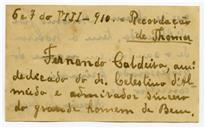 6 e 7 do VIII - 910. - Recordação
de Thomar
Fernando Caldeira, ami
dedicado do dr. Celestino d'Al
meida e admirador sincero
do grande homem de Bem.